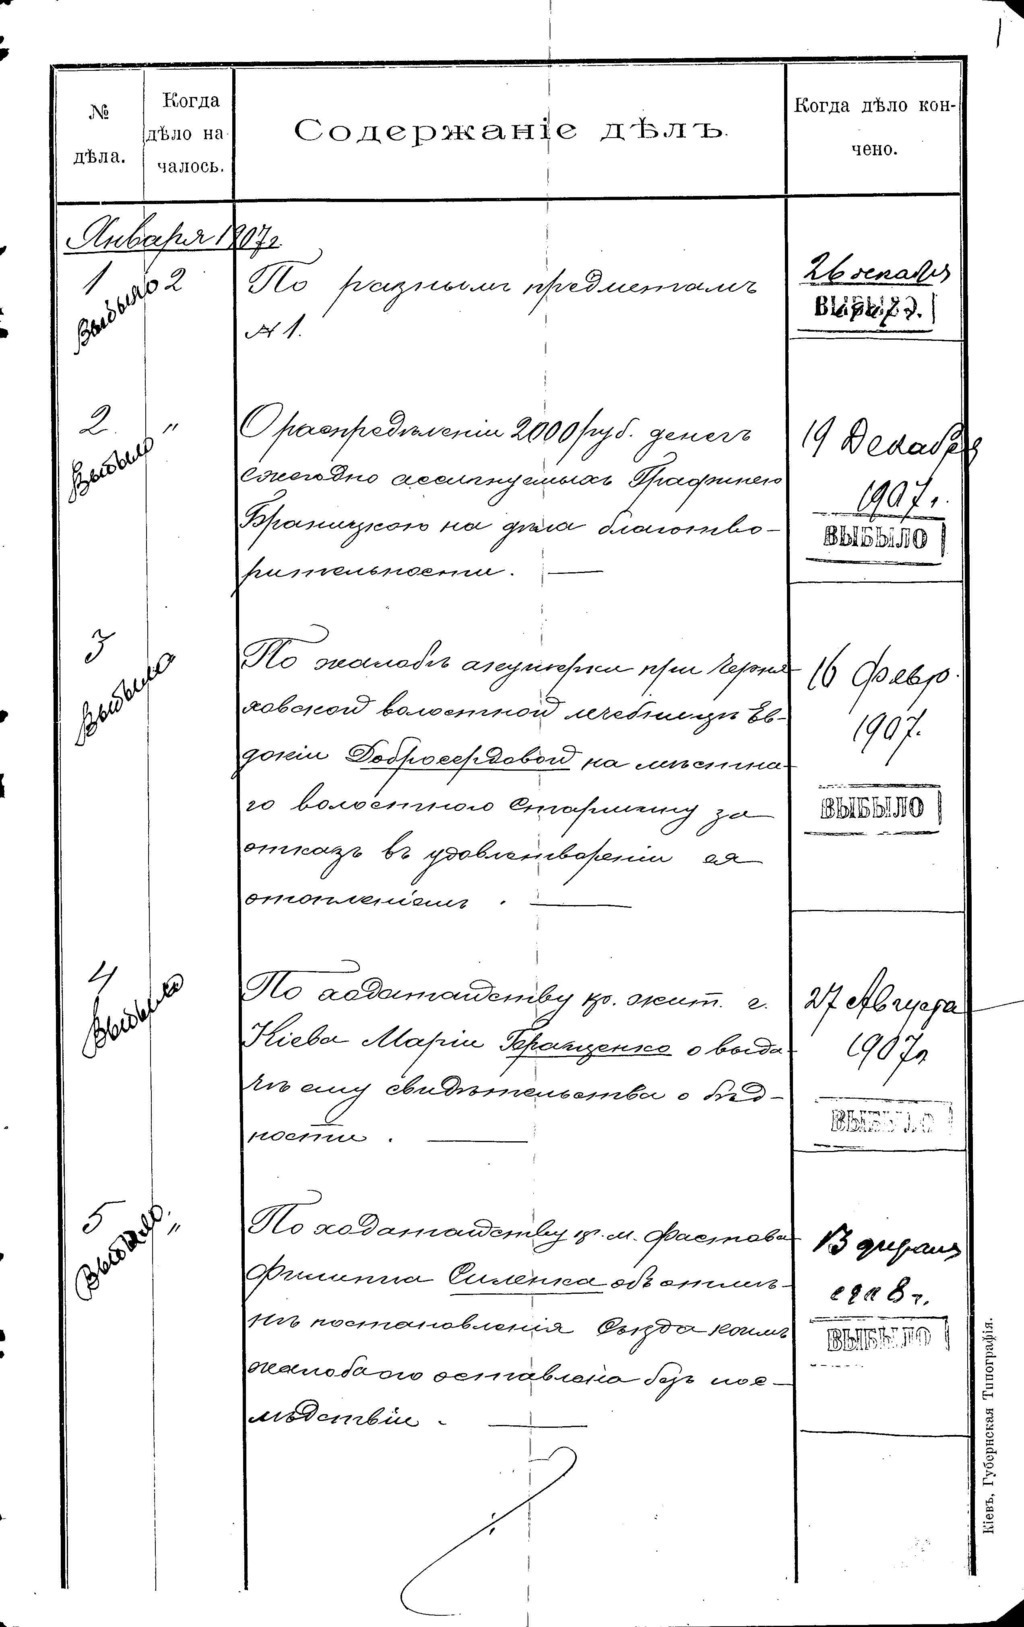 № дѣла.
Когда дѣло на-
чалось.
Содержаніе дѣлъ.
Когда дѣло кон-
чено.
Января 1907 г.
1
Выбыло
2
По разнымъ предметамъ
№ 1.
26 декабря
1907 г.
ВЫБЫЛО
2.
Выбыло
"
О распредѣленіи 2000 руб. денегъ
ежегодно ассигнуемыхъ Графинею
Браницкою на дѣла благотво-
рительности.
19 Декабря
1907 г.
ВЫБЫЛО
3
Выбыло
По жалобѣ акушерки при Черня-
ховской волостной лечебницѣ Ев-
докіи Добросердовой на мѣстна-
го волостного Старшину за
отказъ въ удовлетвореніи ея
отопленіемъ.
16 Февр.
1907.
ВЫБЫЛО
4
Выбыло
По ходатайству кр. жит. г.
Кіева Маріи Геращенко о выда-
чѣ ему свидѣтельства о бѣд-
ности.
27 Августа
1907 г.
ВЫБЫЛО
5
Выбыло.
"
По ходатайству кр. м. Фастова
Филиппа Силенка объ отмѣ-
нѣ постановленія Съѣзда коимъ
жалоба его оставлена безъ пос-
лѣдствій.
1908 г.
ВЫБЫЛО
Кіевъ, Губернская Типографія.